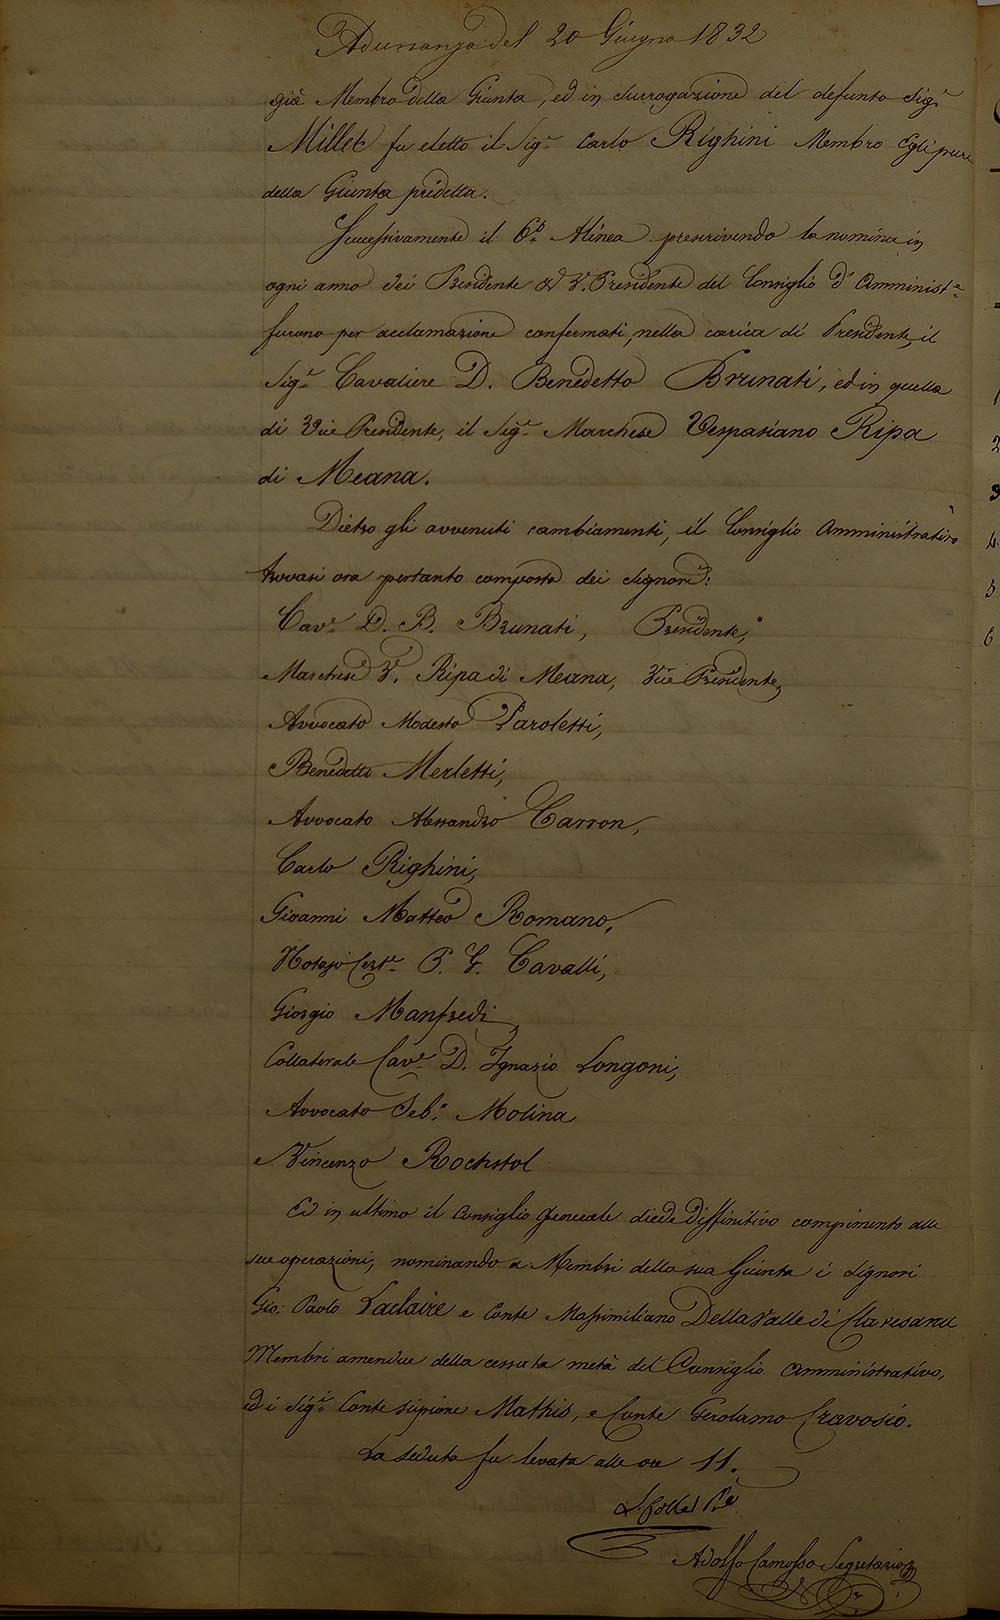 Adunanza del 20 Giugno 1832
già Membro della Giunta, ed in surrogazione del defunto Sig.r
Millet fu eletto il Sig.r Carlo Righini Membro Egli pure
della Giunta pred.tta.
Successivamente il 6.to Alinea prescrivendo la nomina in
ogni anno dei Presidente e V. Presidente del Consiglio d'Amminist.e
furono per acclamazione confermati, nella carica di Presidente, il
Sig.r Cavaliere D. Benedetto Brunati, ed in quella
di Vice Presidente, il Sig.r Marchese Vespasiano Ripa
di Meana.
Dietro gli avvenuti cambiamenti, il Consiglio Amministrativo
trovasi ora pertanto composto dei Signori:
Cav.e D. B. Brunati, Presidente,
Marchese V. Ripa di Meana, Vice Presidente,
Avvocato Modesto Paroletti,
Benedetto Merletti,
Avvocato Alessandro Carron,
Carlo Righini,
Giovanni Matteo Romano,
Notajo Cert.e P. G. Cavalli,
Giorgio Manfredi,
Collaterale Cav.e D. Ignazio Longoni,
Avvocato Seb.o Molina
e Vincenzo Rochstol
Ed in ultimo il Consiglio Generale diede diffinitivo compimento alle
sue operazioni, nominando a Membri della sua Giunta i Signori
Gio: Paolo Laclaire e Conte Massimiliano Della Valle di Clavesana
Membri amendue della cessata metà del Consiglio Amministrativo,
ed i Sig.i Conte Scipione Mathis, e Conte Gerolamo Cravosio.
La seduta fu levata alle ore 11.
Adolfo Camosso Segretario